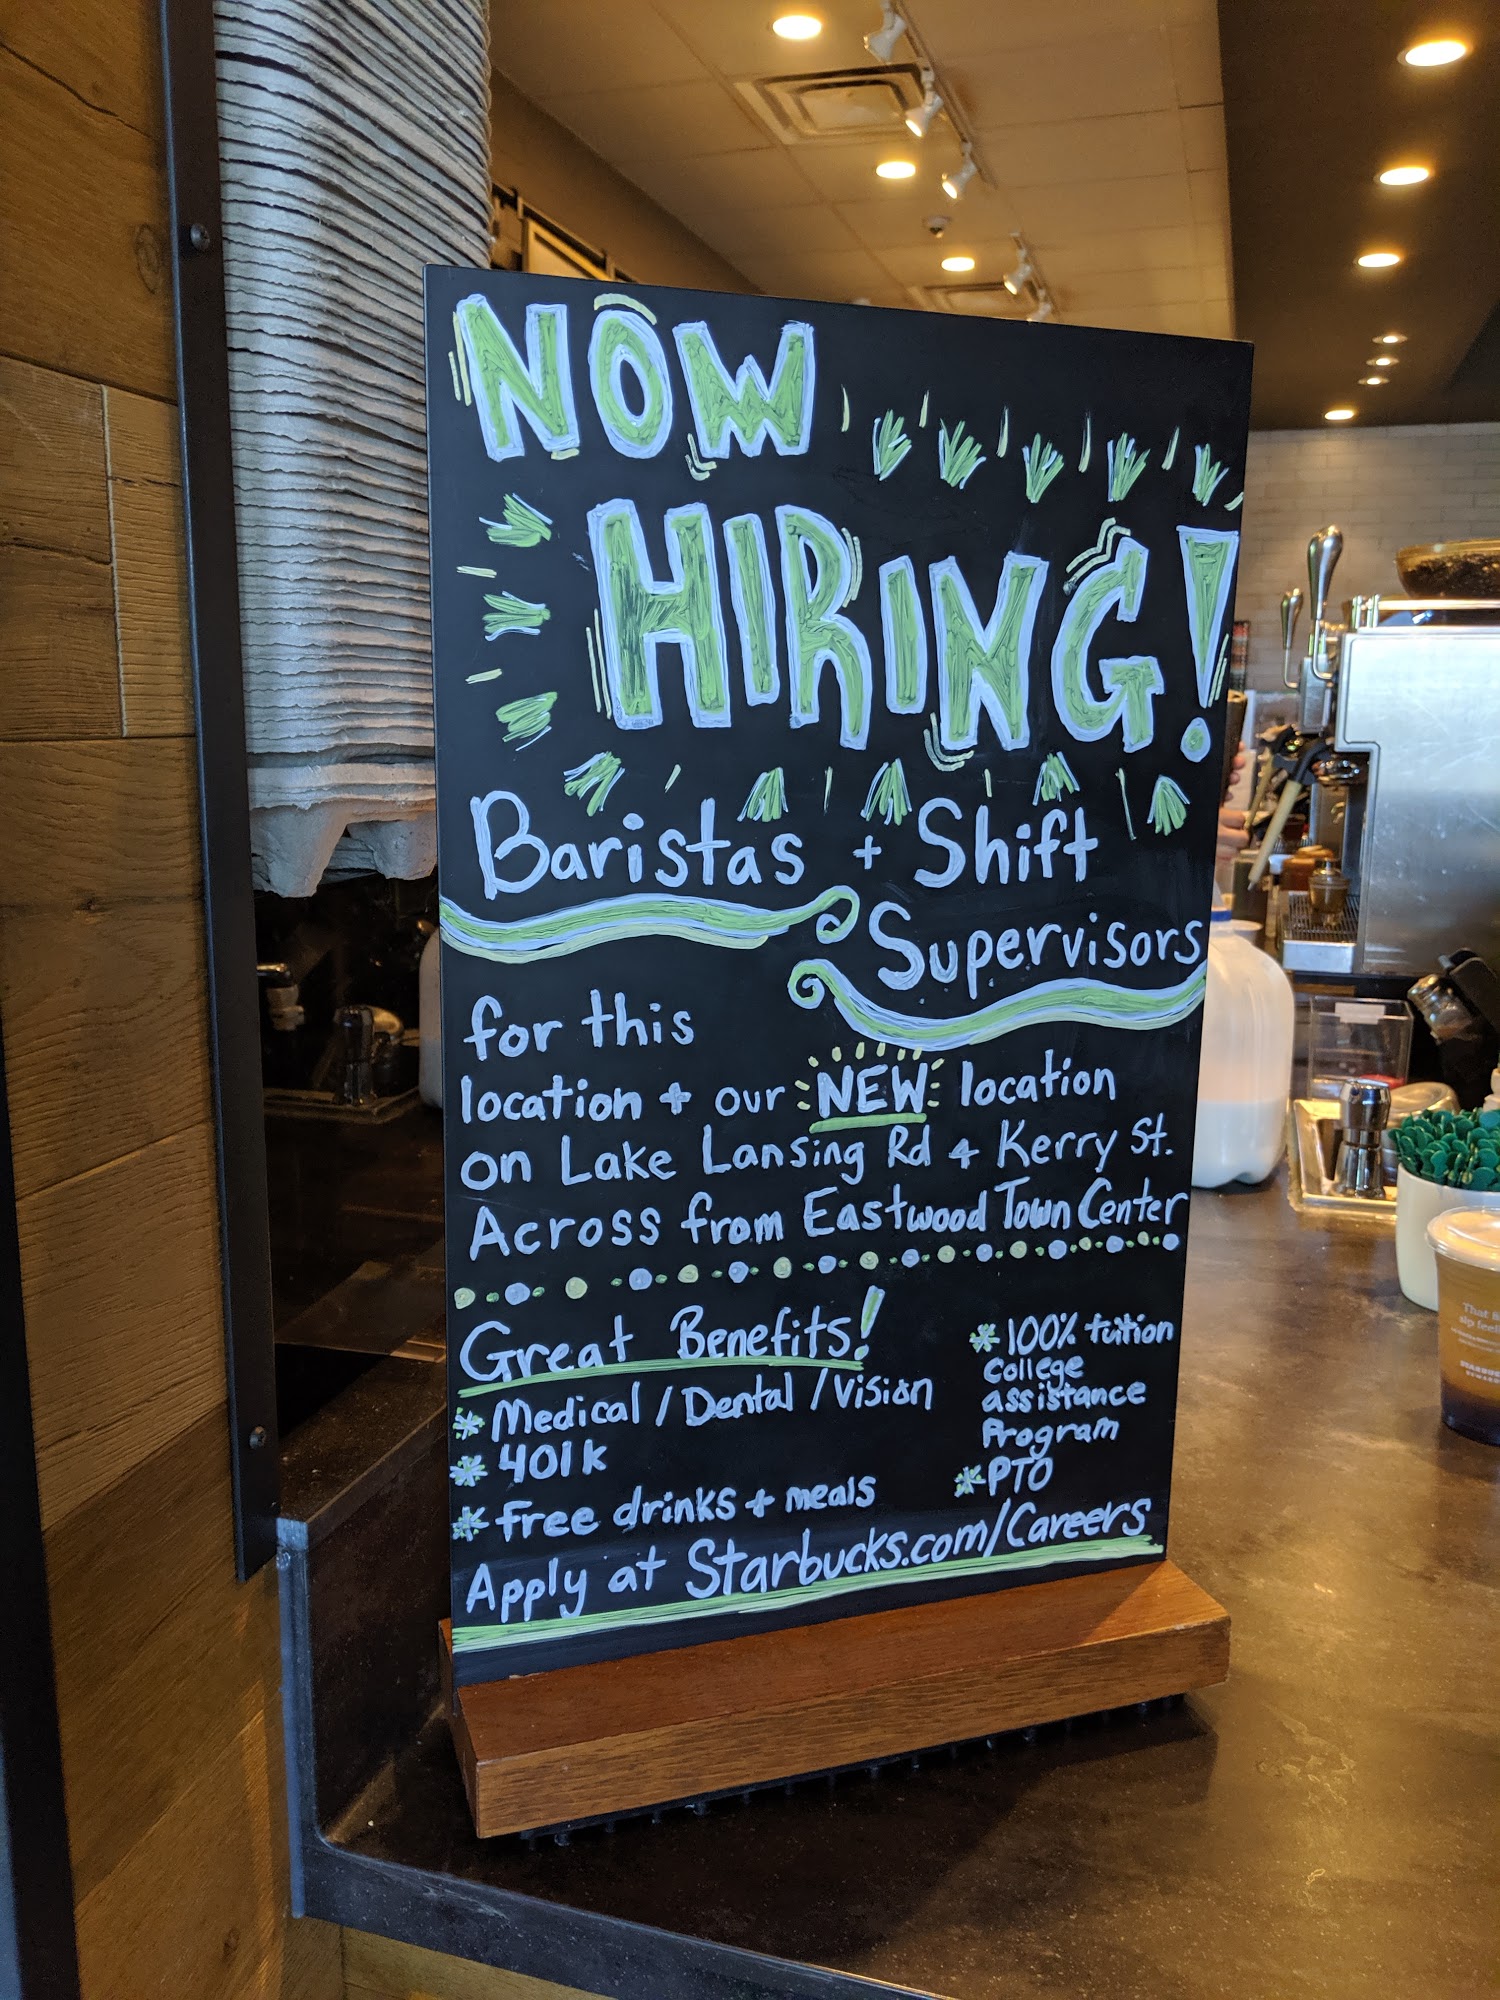 NOW
HIRING!
Baristas + Shift
Supervisors
for this
location + our NEW location
on Lake Lansing Rd & Kerry St.
Across from Eastwood Town Center
Great Benefits!
* Medical / Dental / Vision
* 401k
* Free drinks + meals
* 100% tuition
College
assistance
Program
* PTO
Apply at Starbucks.com/Careers
That
sip feel